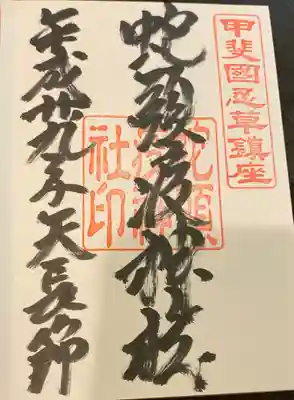 甲斐國忍草鎮座
蛇頭疫神社
社印
平成廿九年天長節